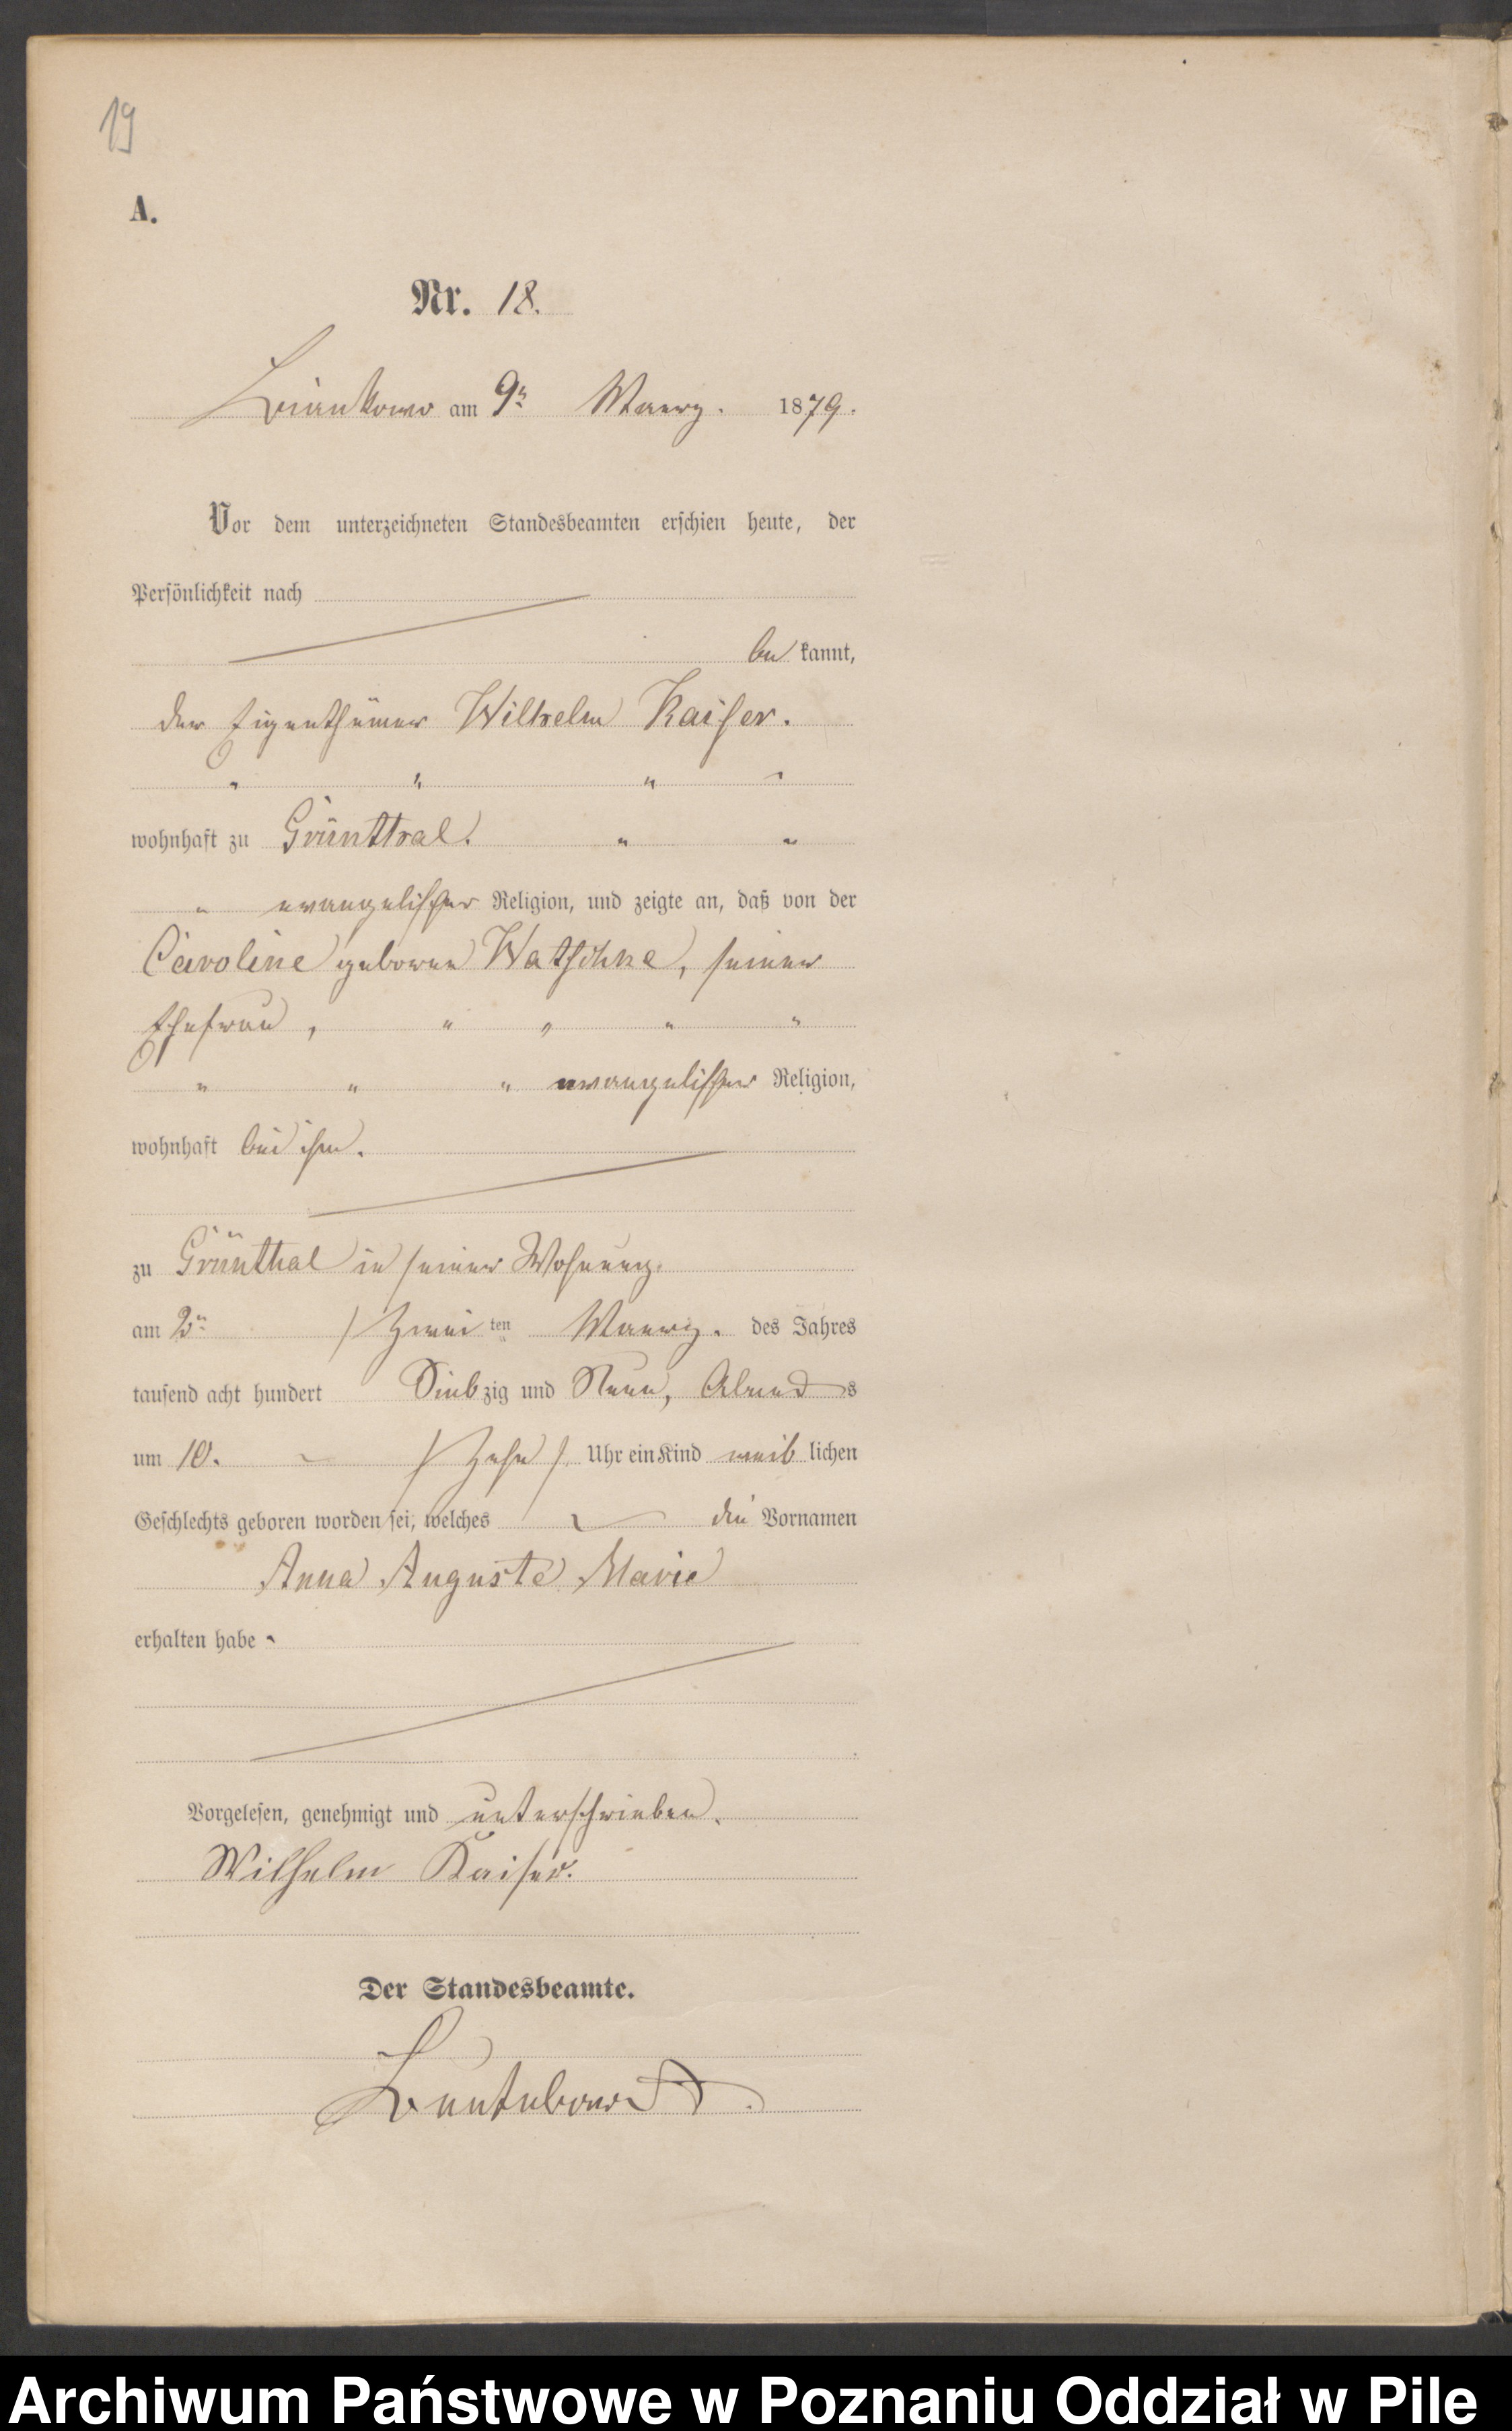 19
A.
Nr. 18.
am 9n Maerz. 1879.
Vor dem unterzeichneten Standesbeamten erschien heute, der
Persönlichkeit nach
be kannt,
der Eigenthümer Wilhelm Kaiser.
" " " "
wohnhaft zu Grünthal. " "
" evangelischer Religion, und zeigte an, daß von der
Caroline geborene Watschke, seiner
Ehefrau, " " " "
" " " evangelischer Religion,
wohnhaft bei ihm.
zu Grünthal in seiner Wohnung.
am 2n / Zwei ten Maerz. des Jahres
tausend acht hundert Siebzig und Neun, Abends
um 10. / Zehn / Uhr ein Kind weib lichen
Geschlechts geboren worden sei, welches die Vornamen
Anna Auguste Marie
erhalten habe
Vorgelesen, genehmigt und unterschrieben.
Wilhelm Kaiser.
Der Standesbeamte.
Archiwum Państwowe w Poznaniu Oddział w Pile